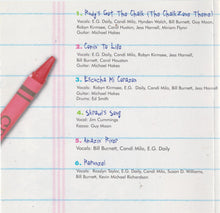 1. Rudy's Got The Chalk (The ChalkZone Theme)
Vocals: E.G. Daily, Candi Milo, Hynden Walch, Bill Burnett, Guy Moon,
Robyn Kirmsee, Carol Huston, Jess Harnell, Miriam Flynn
Guitar: Michael Hakes
2. Comin' To Life
Vocals: E.G. Daily, Candi Milo, Robyn Kirmsee, Jess Harnell,
Bill Burnett, Carol Houston
Guitar: Michael Hakes
3. Escucha Mi Corazon
Vocals: Candi Milo, Robyn Kirmsee, Jess Harnell
Guitar: Michael Hakes
Drums: Ed Smith
4. Skrawl's Song
Vocal: Jim Cummings
Kazoo: Guy Moon
5. Amazin' River
Vocals: Bill Burnett, Candi Milo, E.G. Daily
6. Rapunzel
Vocals: Rosslyn Taylor, E.G. Daily, Candi Milo, Susan D. Williams,
Bill Burnett, Kevin Michael Richardson